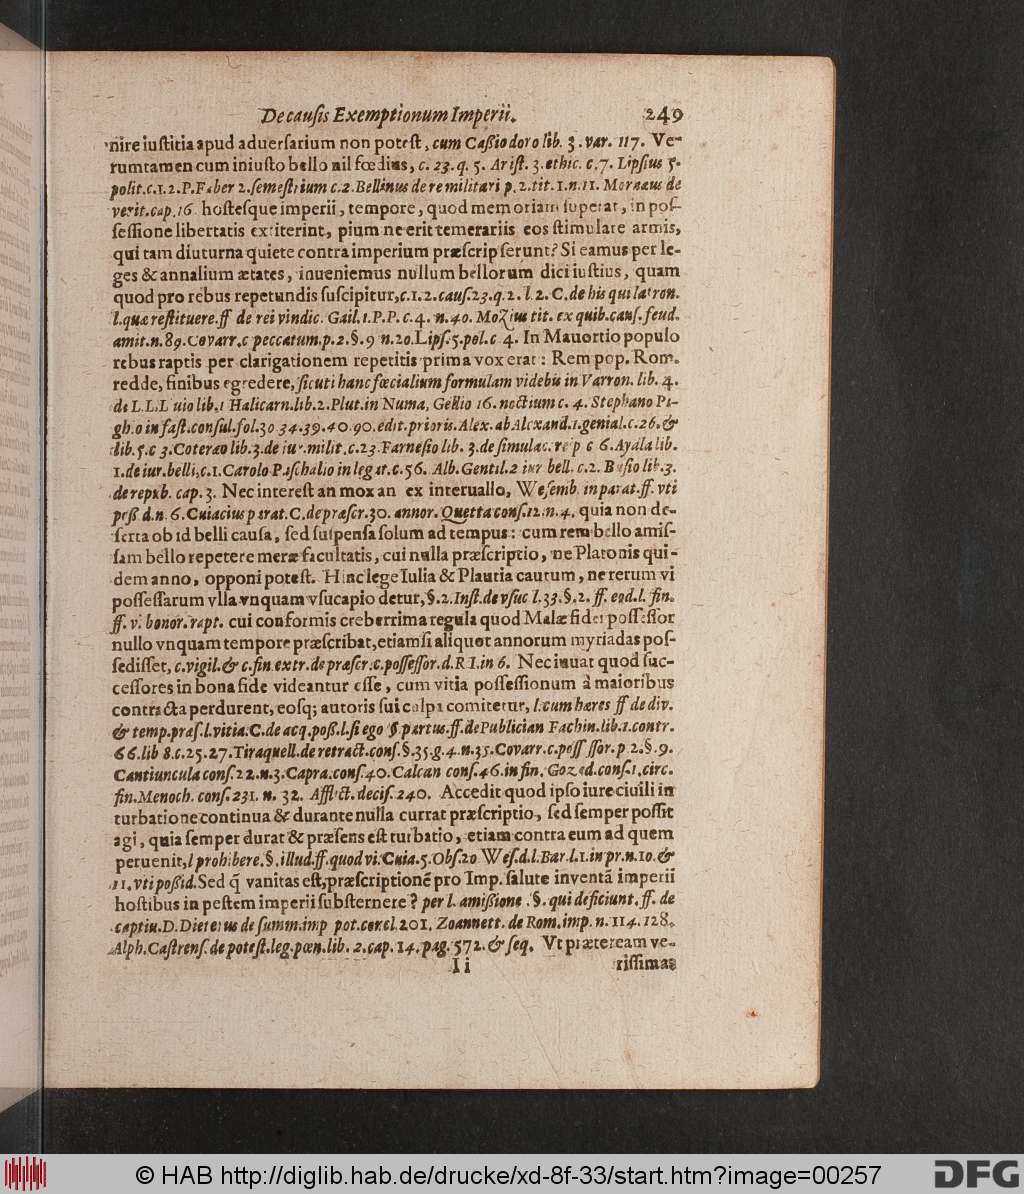 De causis Exemptionum Imperii. 249
nire iustitia apud aduersarium non potest, cum Caßiodoro lib. 3. var. 117. Ve-
rumtamen cum iniusto bello nil fœdius, c. 23. q. 5. Arist. 3. ethic. c. 7. Lipsius 5.
polit. c. 1. 2. P. Faber 2. semestrium c. 2. Bellinus de re militari p. 2. tit. 1. n. 11. Mornæus de
verit. cap. 16. hostesque imperii, tempore, quod memoriam superat, in pos-
sessione libertatis extiterint, pium ne erit temerariis eos stimulare armis,
qui tam diuturna quiete contra imperium præscripserunt? Si eamus per le-
ges & annalium ætates, inueniemus nullum bellorum dici iustius, quam
quod pro rebus repetundis suscipitur, c. 1. 2. caus. 23. q. 2. l. 2. C. de his qui latron.
l. quæ restituere. ff de rei vindic. Gail. 1. P. P. c. 4. n. 40. Mozius tit. ex quib. caus. feud.
amit. n. 89. Covarr. c peccatum. p. 2. §. 9 n. 20. Lips. 5. pol. c 4. In Mauortio populo
rebus raptis per clarigationem repetitis prima vox erat: Rem pop. Rom.
redde, finibus egredere, sicuti hanc fœcialium formulam videbis in Varron. lib. 4.
de L. L. L uio lib. 1 Halicarn. lib. 2. Plut. in Numa, Gellio 16. noctium c. 4. Stephano Pi-
gh. o in fast. consul. fol. 30 34. 39. 40. 90. edit. prioris. Alex. ab Alexand. 1. genial. c. 26. &
lib. 5. c 3. Coteræo lib. 3. de iur. milit. c. 23. Farnesio lib. 3. de simulac. reip c 6. Ayala lib.
1. de iur. belli, c. 1. Carolo Paschalio in legat. c. 56. Alb. Gentil. 2 iur bell. c. 2. Busio lib. 3.
de repub. cap. 3. Nec interest an mox an ex interuallo, Wesemb. in parat. ff. vti
poß d. n. 6. Cuiacius parat. C. de præscr. 30. annor. Quetta cons. 12. n. 4. quia non de-
serta ob id belli causa, sed suspensa solum ad tempus: cum rem bello amis-
sam bello repetere meræ facultatis, cui nulla præscriptio, ne Platonis qui-
dem anno, opponi potest. Hinc lege Iulia & Plautia cautum, ne rerum vi
possessarum vlla vnquam vsucapio detur, §. 2. Inst. de vsuc l. 33. §. 2. ff. eod. l. fin.
ff. vi bonor. rapt. cui conformis creberrima regula quod Malæ fidei possessor
nullo vnquam tempore præscribat, etiamsi aliquot annorum myriadas pos-
sedisset, c. vigil. & c. fin. extr. de præscr. c. possessor. d. R I. in 6. Nec iuuat quod suc-
cessores in bona fide videantur esse, cum vitia possessionum à maioribus
contracta perdurent, eosq; autoris sui culpa comitetur, l. cum hæres ff de div.
& temp. præs. l. vitia. C. de acq. poß. l. si ego §. partus. ff. de Publician Fachin. lib. 1. contr.
66. lib 8. c. 25. 27. Tiraquell. de retract. cons. §. 35. g. 4. n. 35. Covarr. c. poss ssor. p 2. §. 9.
Cantiuncula cons. 22. n. 3. Capra. cons. 40. Calcan cons. 46. in fin. Gozad. cons. 1. circ.
fin. Menoch. cons. 231. n. 32. Afflict. decis. 240. Accedit quod ipso iure ciuili in
turbatione continua & durante nulla currat præscriptio, sed semper possit
agi, quia semper durat & præsens est turbatio, etiam contra eum ad quem
peruenit, l prohibere. §. illud. ff. quod vi. Cuia. 5. Obs. 20 Wes. d. l. Bar. l. 1. in pr. n. 10. &
11. vti poßid. Sed q̃ vanitas est, præscriptionẽ pro Imp. salute inventã imperii
hostibus in pestem imperii substernere? per l. amißione. §. qui deficiunt. ff. de
captiu. D. Dieterus de summ. imp pot. concl. 201. Zoannett. de Rom. imp. n. 114. 128.
Alph. Castrens. de potest. leg. pœn. lib. 2. cap. 14. pag. 572. & seq. Vt præteream ve-
Ii rissimas
© HAB http://diglib.hab.de/drucke/xd-8f-33/start.htm?image=00257 DFG